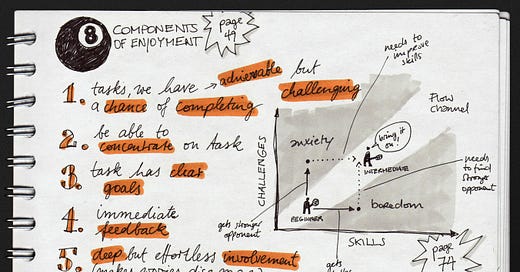 8 COMPONENTS
OF ENJOYMENT
page
49
1. tasks, we have → achievable but
challenging
a chance of completing
2. be able to
concentrate on task
3. task has clear
goals
4. immediate
feedback
5. deep but effortless involvement
needs to
improve
skills
Flow
channel
CHALLENGES
anxiety
bring it
on.
INTERMEDIATE
needs
to find
stronger
opponent
BEGINNER
boredom
gets stronger
opponent
SKILLS
gets
page
74